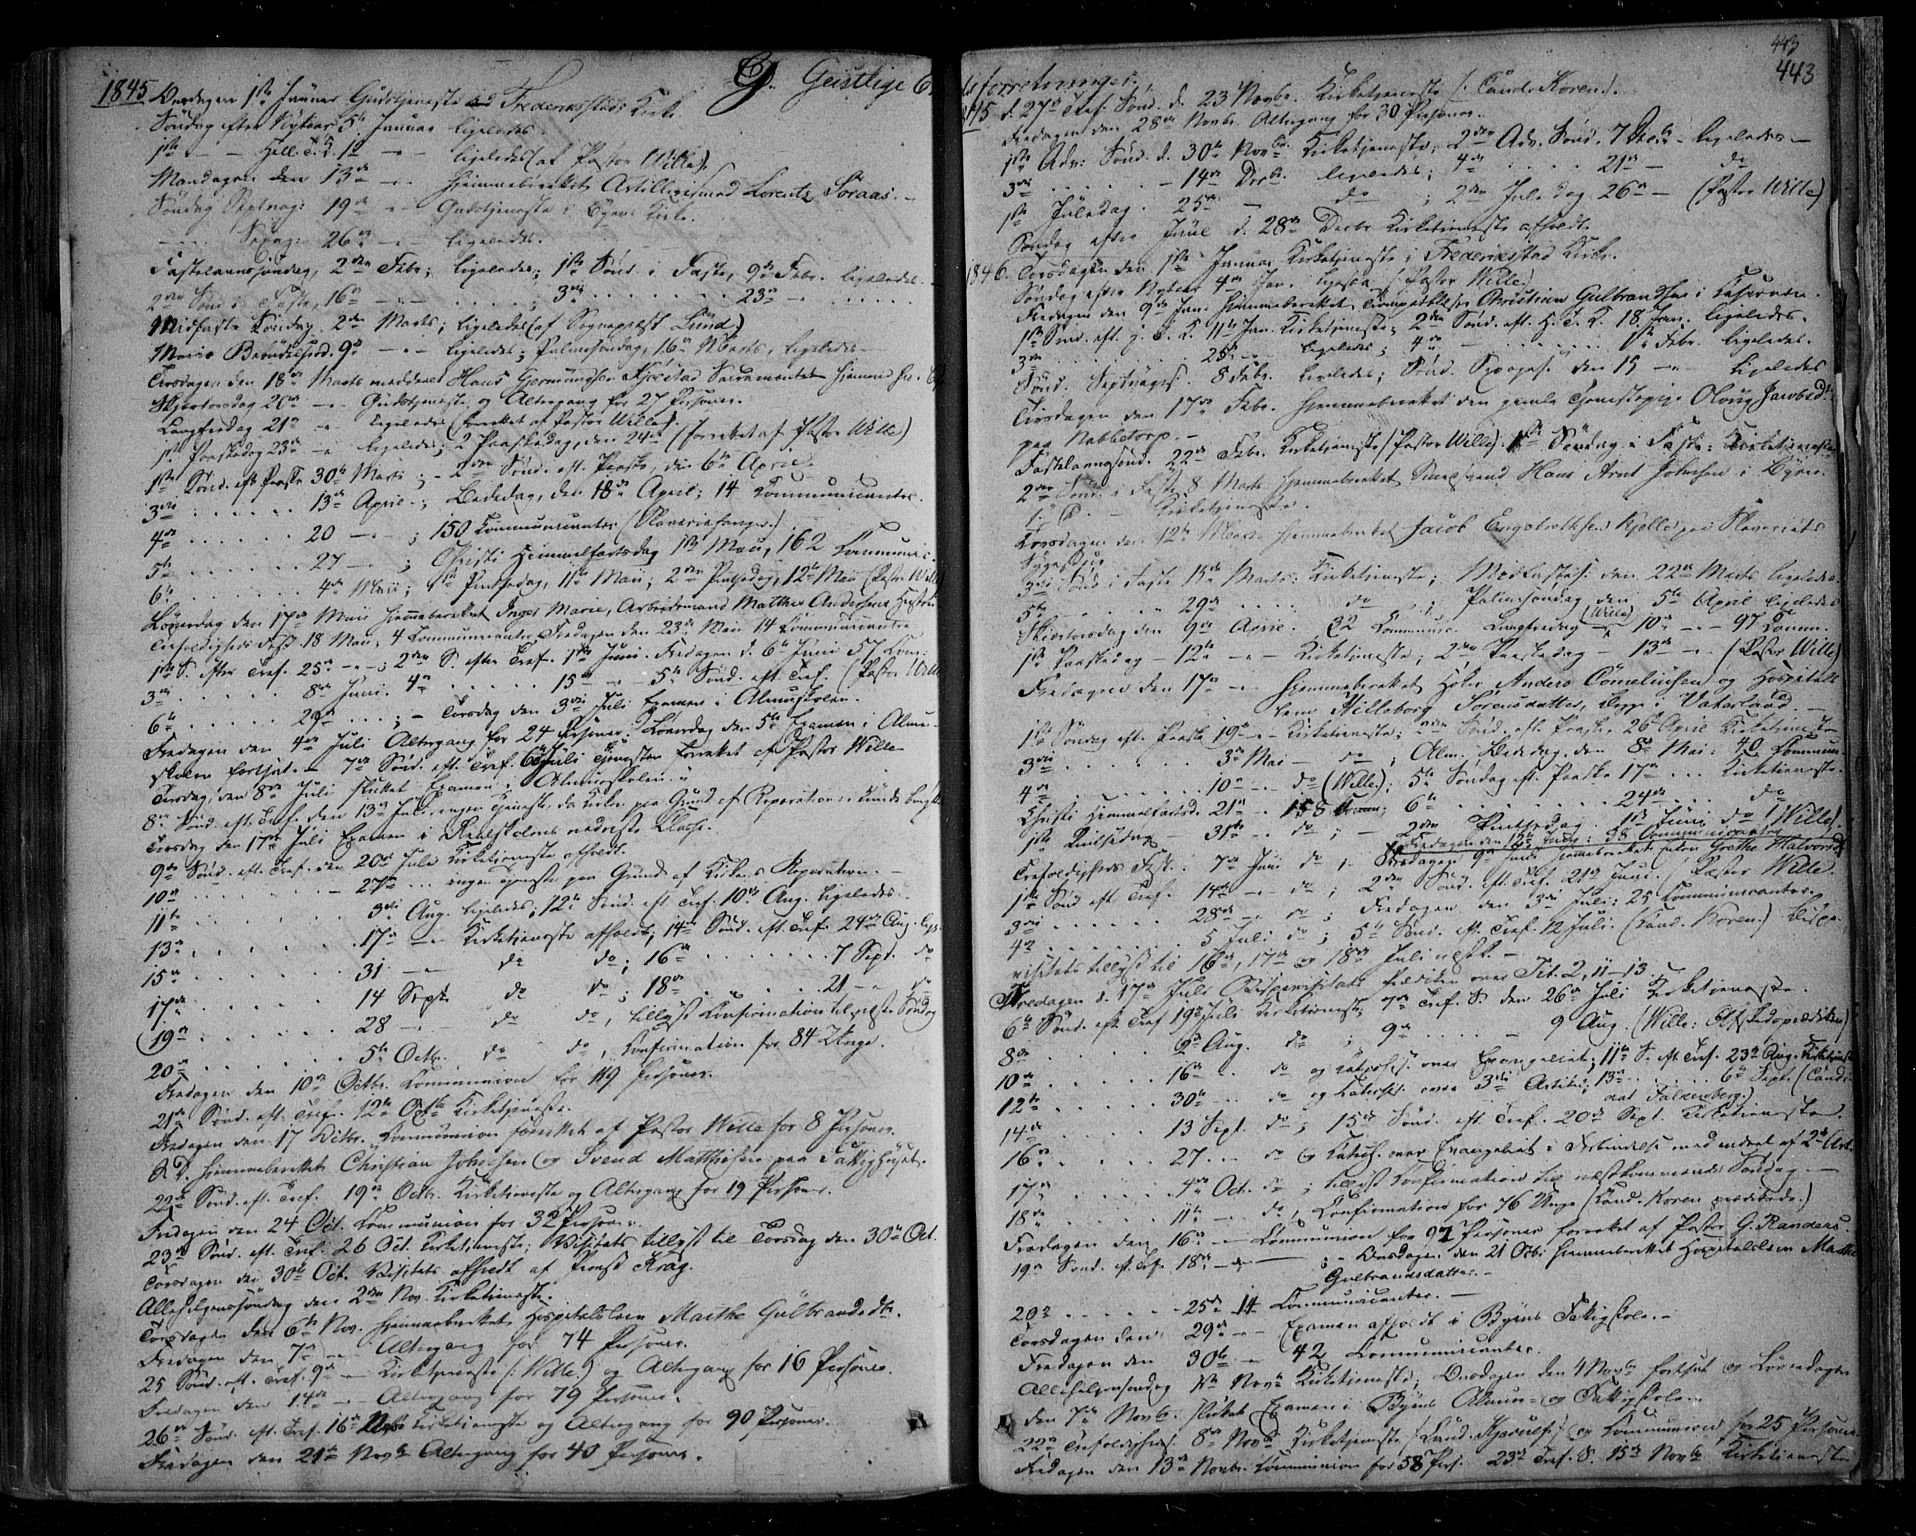 G. Geistlige
1845 Onsdagen 1ste Januar Gudstjeneste ved Frederiksstads Kirke
Söndag efter Nytaar 5te Januar ligeledes.
1ste — — Hell. 3 K. 12 — ligeledes (af Pastor Wille).
Mandagen den 13de — Hjemmeberettet Artillerimand Lorentz Soraas. —
Söndag Septuag: 19de — Gudstjeneste i Byens Kirke.
.... Sexag: 26de — ligeledes.
Fastelavnssöndag, 2den Febr; ligeledes; 1ste Sönd. i Faste, 9de Febr. ligeledes
2den Sönd. i Faste, 16de — ..... ; 3die ..... 23de — .....
Midfaste Söndag. 2den Marts; ligeledes (af Sognepræst Lund)
Mariæ Bebudelsesd. 9de — ligeledes; Palmesöndag, 16de Marts, ligeledes —
Tirsdagen den 18de Marts meddeelt Hans Gormundsen Kjölstad Sacramentet hjemme
Skjertorsdag 20de — Gudstjeneste og Altergang for 27 Personer.
Langfredag 21de — ligeledes (forrettet af Pastor Wille).
1ste Paaskedag 23de — ligeledes; 2 Paaskedag, den 24de (forrettet af Pastor Wille)
1ste Sönd. eft. Paaske 30te Marts; — 2den Sönd. eft. Paaske, den 6te April —
3die ..... 13de April —; Bededag, den 18de April; 14 Communicanter.
4de ..... 20 — ; 150 Kommunicanter (Slaveriefanger.)
5te ..... 27 — ; Christi Himmelfartsdag 1ste Maii, 162 Communic.
6te ..... 4de Maii; 1ste Pintsedag, 11te Maii; 2den Pintsedag, 12te Maii (Pastor Wille)
Löverdag den 17de Maii Hjemmeberettet Inger Marie, Arbeidsmand Mathis Andersens Hustru
Trefoldigheds Fest. 18 Maii, 4 Communicanter, Fredagen den 23de Maii 14 Communicanter
1ste S. efter Tref. 25de — ; 2den S. efter Tref. 1ste Juni. Fredagen d. 6te Juni 57 Com:
3die ..... 8de Juni. 4de ..... 15de — 5te Sönd. eft. Tref. (Pastor Wille
6te ..... 29de ... ; — Torsdag den 3die Juli Examen i Almueskolen.
Fredagen den 4de Juli Altergang for 24 Personer. Löverdag den 5te Examen i Almue-
skolen fortsat. — 7de Sönd. eft. Tref. 6te Juli Tjenesten forrettet af Pastor Wille
Tirsdag, den 8de Juli sluttet Examen i Almueskolen. —
8de Sönd. eft. Tref. den 13de Juli, ingen Tjeneste, da Kirken paa Grund af Reparation
Torsdag den 17de Juli Examen i Realskolens nederste Classe.
9de Sönd. eft. Tref. den 20de Juli Kirketjeneste afholdt.
10de ..... — 27de ... ingen Tjeneste paa Grund af Kirkens Reparation. —
11te ..... 3die Aug. ligeledes; 12te Sönd. eft. Tref. 10de Aug. ligeledes.
13de ..... 17de — Kirketjeneste afholdt; 14de Sönd. eft. Tref. 24de Aug.
15de ..... 31 — do do; 16de ..... 7 Sept. do
17de ..... 14 Sept. do do; 18de ..... 21 — do
19de ..... 28 — do do, tillyst Konfirmation til næste Söndag
20de ..... 5te Octbr. do do, Confirmation for 84 Unge.
Fredagen den 10de Octbr. Communion for 119 Personer.
21de Sönd. eft. Tref. 12te Octb Kirketjeneste.
Fredagen den 17 Octbr. Communion forrettet af Pastor Wille for 8 Personer.
S. D. Hjemmeberettet Christian Johnsen og Svend Mathisen paa Fattighuset.
22de Sönd. eft. Tref. 19de Octbr. Kirketjeneste og Altergang for 19 Personer.
Fredagen den 24 Oct. Communion for 32 Personer.
23de Sönd. eft. Tref. 26 Oct. Kirketjeneste; Visitats tillyst til Torsdag den 30te Oct.
Torsdagen den 30te Oct. Visitats afholdt af Provst Krag.
Allehelgenssöndag den 2den Nov. Kirketjeneste.
Torsdagen den 6te Nov. Hjemmeberettet Hospitalslem Marthe Gulbrandsdtr.
Fredagen den 7de — Altergang for 74 Personer.
25 Sönd. eft. Tref. 9de — Kirketjeneste (: Wille) og Altergang for 16 Personer.
Fredagen den 14de — Altergang for 79 Personer.
26de Sönd. eft. Tref. 16de Novbr Kirketjeneste og Altergang for 90 Personer.
Fredagen den 21de Novb Altergang for 40 Personer.
443
443
forretninger.
1845 d. 27de Tref. Sönd. d. 23 Novbr. Kirketjeneste (: Cand. Koren).
Fredagen den 28de Novbr. Altergang for 30 Personer.
1ste Adv: Sönd. d. 30te Novbr. Kirketjeneste; 2den Adv. Sönd. 7 Decbr. ligeledes —
3die ..... — 14de Decbr. ligeledes; 4de ..... 21de — do
1ste Juledag. 25de — do ; 2den Juledag 26de — (Pastor Wille)
Söndag efter Juul d. 28de Decbr Kirketjeneste afholdt.
1846. Torsdagen den 1ste Januar Kirketjeneste i Frederiksstad Kirke.
Söndag efter Nytaar 4de Jan. ligesaa (: Pastor Wille.)
Fredagen den 9de Jan. Hjemmeberettet Christian Gulbrandsen i
1ste Sönd. eft. H. 3. K. 11te Jan. Kirketjeneste; 2den Sönd. eft. H. 3. K. 18 Jan. ligeledes.
3die ..... 25de — ligeledes; 4de ..... 1ste Febr. ligeledes.
Sönd. Septuages. 8 Febr. ligeledes; Sönd. Sexages. den 15 — ligeledes
Tirsdagen den 17de Febr. Hjemmeberettet den gamle Tjenestepige Oloug Jacobsdtr
paa Nabbetorp. —
Fastelavnssönd. 22de Febr. Kirketjeneste (Pastor Wille). 1ste Söndag i Faste: Kirketjeneste
2den Sönd. i Faste 8 Marts Hjemmeberettet Hans Arnt Johnsen i Byen.
— Kirketjeneste.
Torsdagen den 12te Marts Hjemmeberettet Jacob Engebrethsen Kjelle paa Slaveriets
Sygehuus
3die Sönd. i Faste 15de Marts. Kirketjeneste; Midfastes. den 22de Marts ligeledes
5te ..... 29de ..... do ; Palmesöndag den 5te April ligeledes
Skjertorsdag den 9de April. 32 Commun. Langfredag (Wille) 10de — 97 Comm.
1ste Paaskedag — 12te — Kirketjeneste; 2den Paaskedag — 13de — (Pastor Wille)
Fredagen den 17de — Hjemmeberettet Anders Corneliusen og Hospitals-
lem Willeborg Torensdatter, begge i Vaterland. —
1ste Söndag eft. Paaske 19de — Kirketjeneste; 2den Sönd. eft. Paaske 26de April Kirketjeneste
3die ..... 3de Mai — do; Alm. Bededag, den 8de Mai: 40 Commun.
4de ..... 10de — do (Wille); 5te Söndag eft. Paaske 17de ... Kirketjeneste.
Christi Himmelfartsd. 21de — 158 Comm; 6te ..... 24de ... do
1ste Pintsedag — 31te — do ; — 2den Pintsedag. 1ste Juni do (Wille).
Fredagen den 12te Juni: 38 Communicanter
Trefoldigheds Fest. 7de Juni do ; Tirsdagen 9de Juni Hjemmeberettet Grethe Halvorsd.
1ste Sönd. eft. Tref. 14de — do ; 2den Sönd. eft. Tref. 21de Juni. (Pastor Wille.
3die ..... 28de — do ; Fredagen den 3die Juli: 25 Communicanter.
4de ..... 5 Juli do ; 5te Sönd. eft. Tref. 12 Juli. (Cand. Koren.) Bispe-
visitats tillyst til 16de, 17de og 18de Juli næstk. —
Fredagen d. 17de Juli Bispevisitats Prædiken over Tit. 2, 11—13.
6te Sönd. eft. Tref 19de Juli Kirketjeneste; 7de Tref. S. den 26de Juli Kirketjeneste.
8de ..... 2den Aug. do ; 9de ..... 9 Aug. (Wille: Afskedsprædiken)
10de ..... 16de — do og Katechis. over Evangeliet; 11te S. eft. Tref. 23de Aug. Kirketjeneste
12te ..... 30te — do og Katechis. over 3die Artikel; 13de ..... 6te Sept. (Candi-
dat Falkenberg.)
14de ..... 13 Sept. do ; 15de Sönd. eft. Tref. 20de Sept. Kirketjeneste.
16de ..... 27 — do og Katech. over Evangeliet i Forbindelse med endeel af 2den Art.
17de ..... 4de Oct. do ; tillyst Confirmation til næstkommende Söndag. —
18de ..... 11te — do, Confirmation for 76 Unge (Cand. Koren prædikede.)
Fredagen den 16de — Communion for 97 Personer forrettet af Pastor G. Randers.
19de Sönd. eft. Tref. 18de — do — ; Onsdagen den 21 Octbr Hjemmeberettet Hospitalslem Marthe
Gulbrandsdatter. —
20de ..... 25de 14 Communicanter. —
Torsdagen den 29de — Examen afholdt i Byens Fattigskole. —
Fredagen den 30te — 42 Communicanter.
Allehelgenssöndag 1ste Novbr Kirketjeneste; Onsdagen den 4 Novbr fortsat og Löverdagen
den 7de Novbr. sluttet Examen i Byens Almue- og Fattigskole.
22de Trefoldigheds. 8de Novbr Kirketjeneste (Cand. Kjerulf) og Communion for 25 Personer
Fredagen den 13de Novbr. Communion for 58 Pers. 23de Tref. S. 15de Novbr Kirketjeneste